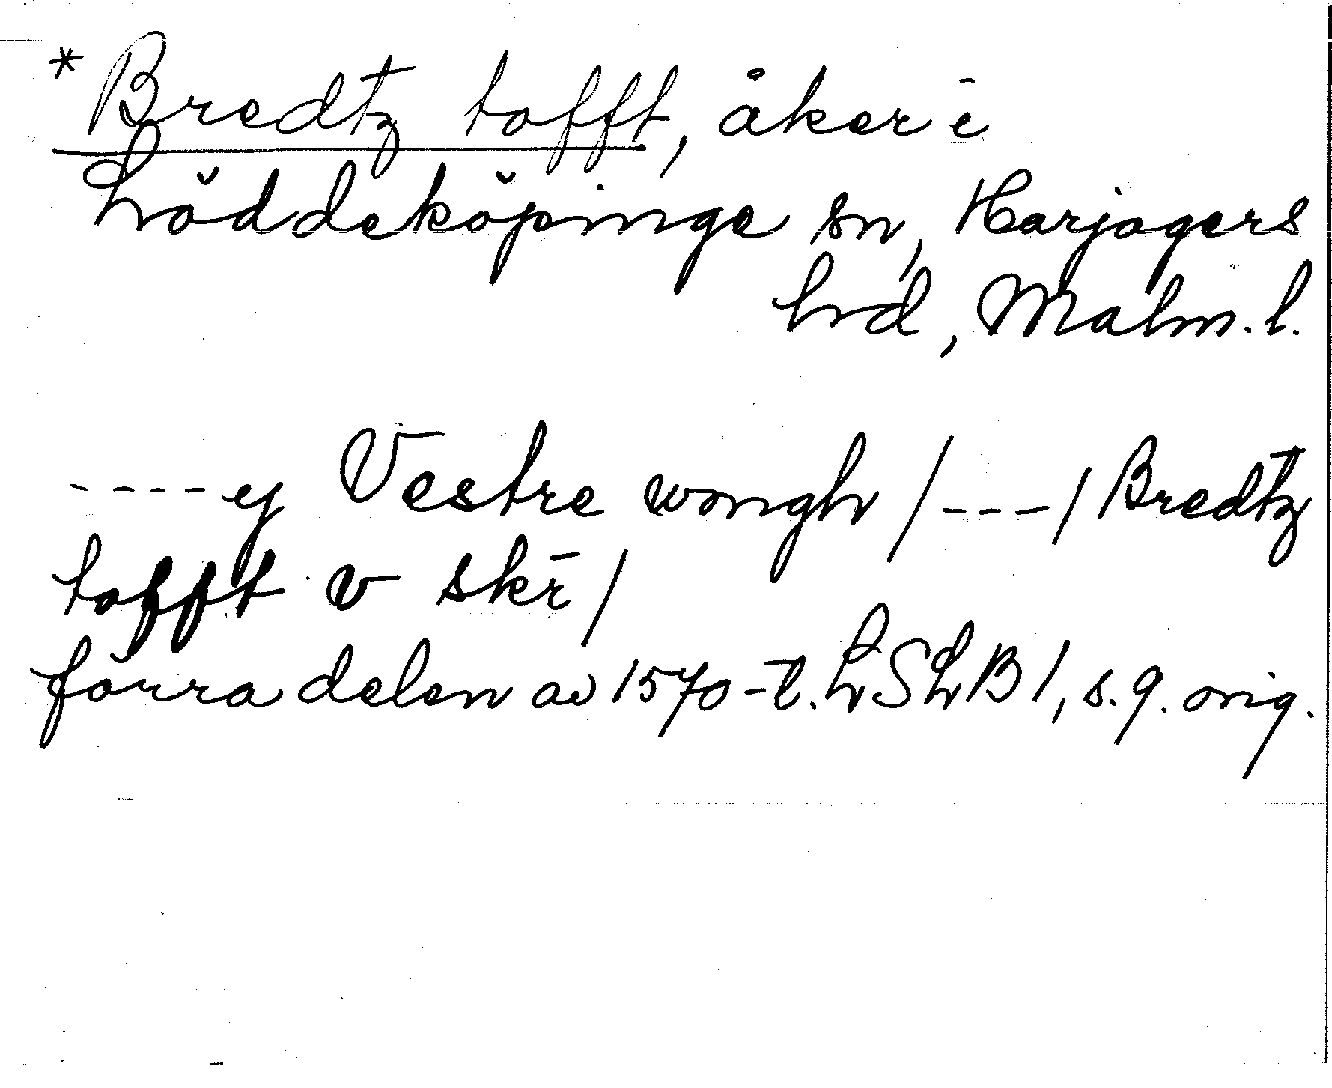 *Bredtz tofft, åker i
Löddeköpinge sn, Harjagers
hd, Malm. l.
----ej Vestre wongh /---/ Bredtz
tofft v skr̄/
förra delen av 1570-t. LSLB1, s. 9. orig.